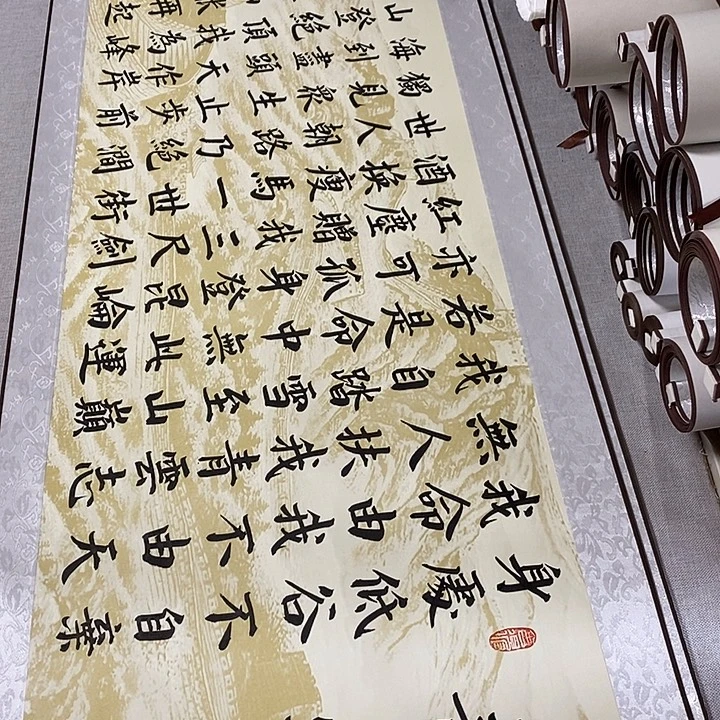 再起
山登絕頂我為峰
海到盡頭天作岸
獨見眾生止步前
世人朝路乃絕澗
酒換瘦馬一世街
紅塵贈我三尺劍
亦可孤身登昆崙
若是命中無此運
我自踏雪至山巔
無人扶我青雲志
我命由我不由天
身處低谷不自棄